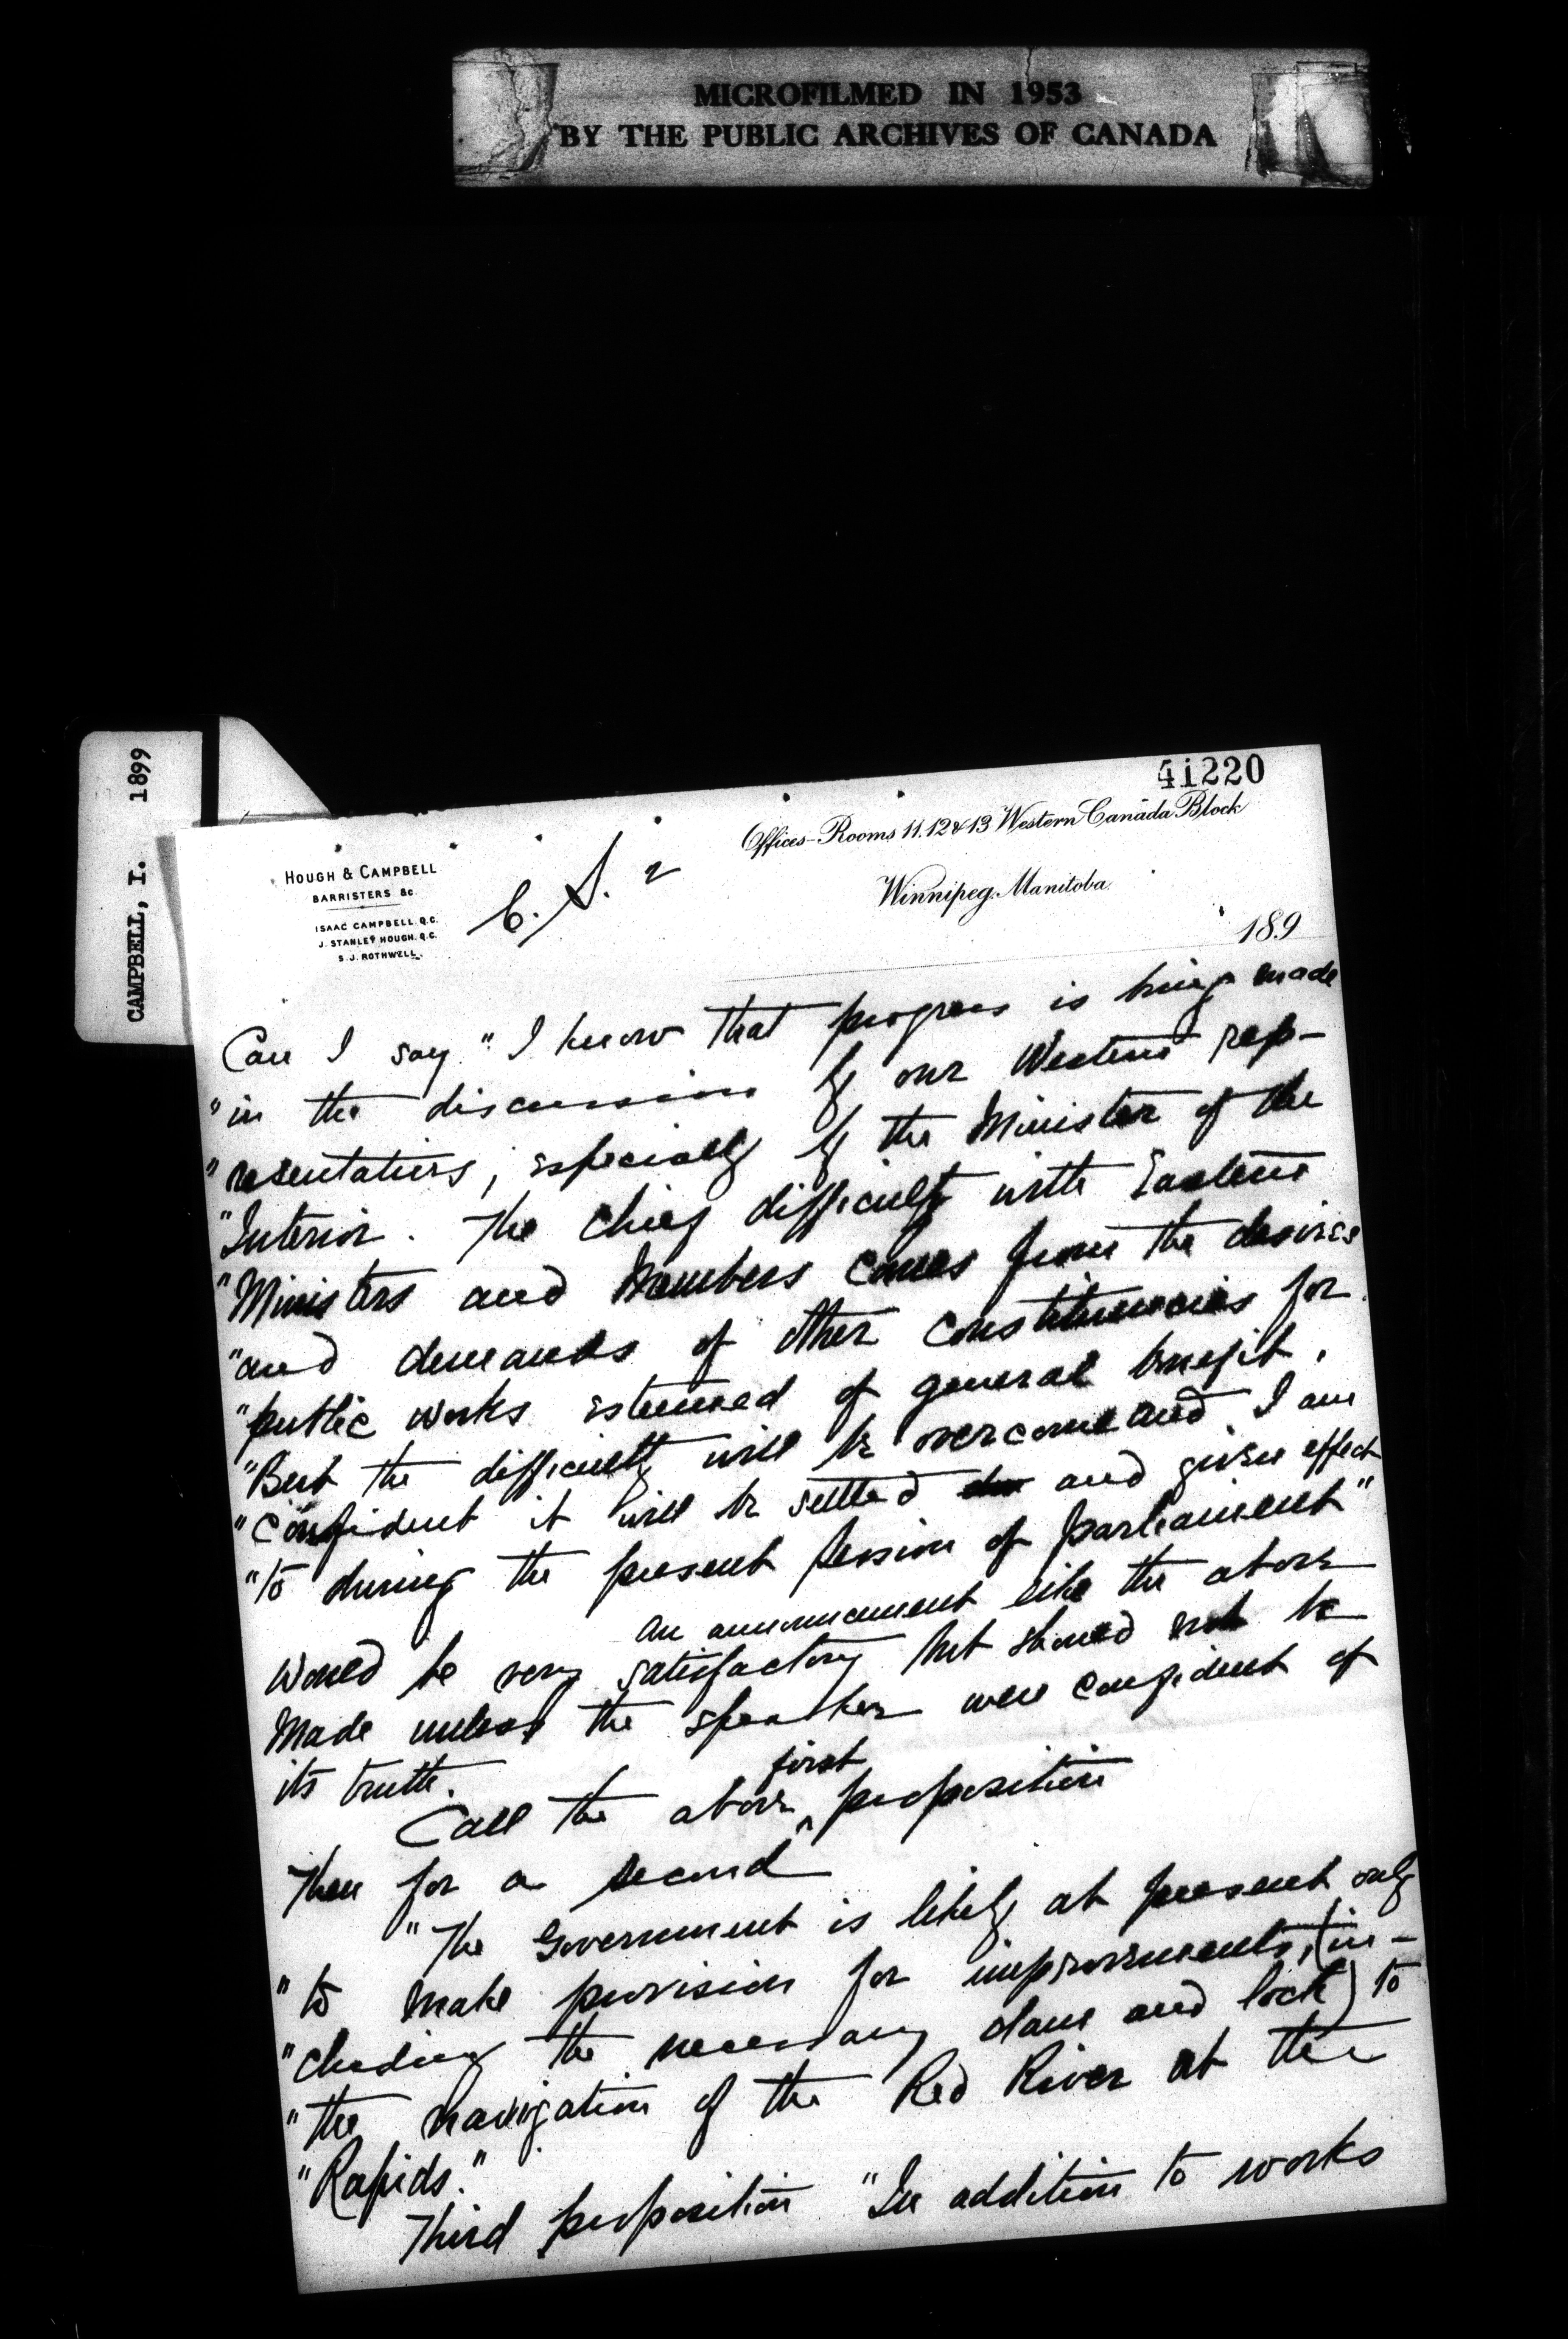 MICROFILMED IN 1953
BY THE PUBLIC ARCHIVES OF CANADA
CAMPBELL, I. 1899
41220
Offices-Rooms 11.12&13 Western Canada Block
HOUGH & CAMPBELL
BARRISTERS &c.
ISAAC CAMPBELL. Q.C.
J. STANLEY HOUGH. Q.C.
S.J. ROTHWELL.
C. S. 2
Winnipeg, Manitoba
189
Can I say "I know that progress is being made
"in the discussion by our Western rep-
"resentatives, especially by the Minister of the
"Interior. The chief difficulty with Eastern
"Ministers and Members comes from the desires
"and demands of other constituencies for
"public works esteemed of general benefit.
"But the difficulty will be overcome and I am
"confident it will be settled and given effect
"to during the present session of parliament"
An announcement like the above
would be very satisfactory but should not be
made unless the speaker were confident of
its truth.
Call the above first proposition
Then for a second
"The Government is likely at present only
"to make provision for improvements, (in-
"cluding the necessary dam and lock) to
"the navigation of the Red River at the
"Rapids."
Third proposition "In addition to works